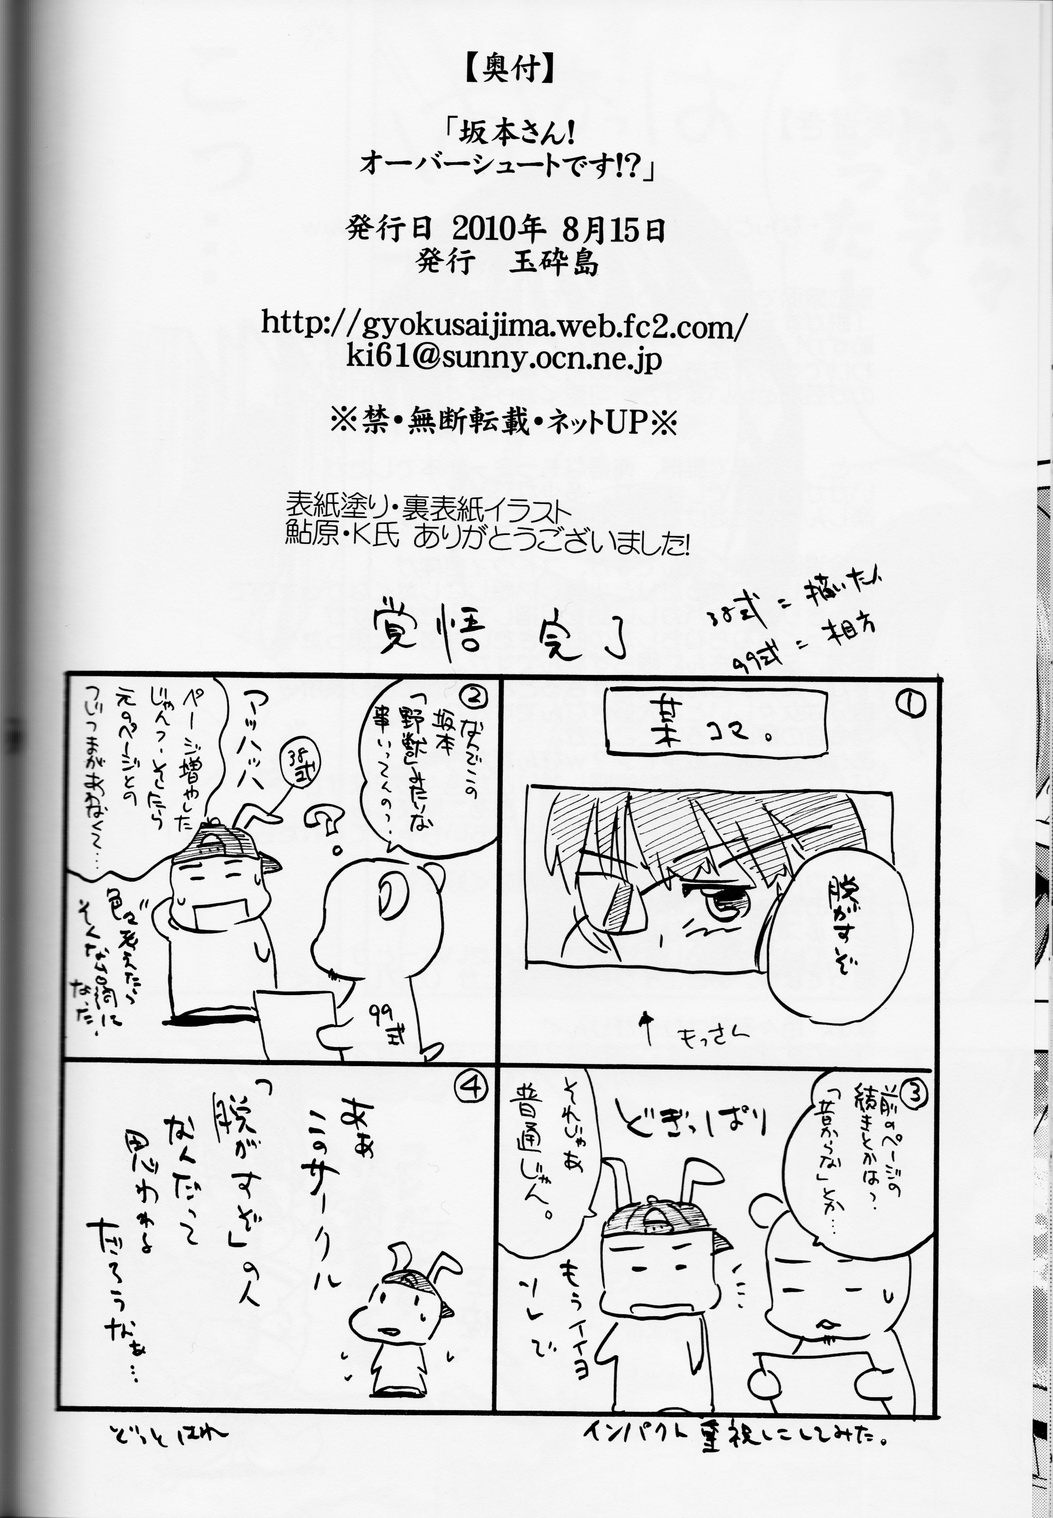 【奥付】
「坂本さん!
オーバーシュートです!?」
発行日 2010年 8月15日
発行 玉砕島
http://gyokusaijima.web.fc2.com/
ki61@sunny.ocn.ne.jp
※禁・無断転載・ネットUP※
表紙塗り・裏表紙イラスト
鮎原・K氏 ありがとうございました!
覚悟 完了
38式 = 描いた人
99式 = 相方
①
某コマ。
脱がすぞ
もっさん
②
なんでこの
坂本
「野獣」みたいな
事いってんの?
アッハッハ
38式
ページ増やした
じゃんっ・そしたら
元のページとの
つじつまがあわなくて…
色々考えたら
そんな台詞に
なった。
99式
③
前のページの
続きとかは?
「昔からな」とか…
どぎっぱり
それじゃあ
普通じゃん。
もうイイヨ
ソレで
④
あぁ
このサークル
「脱がすぞ」の人
なんだって
思われる
だろうなぁ…
インパクト重視にしてみた。
どっとはれ